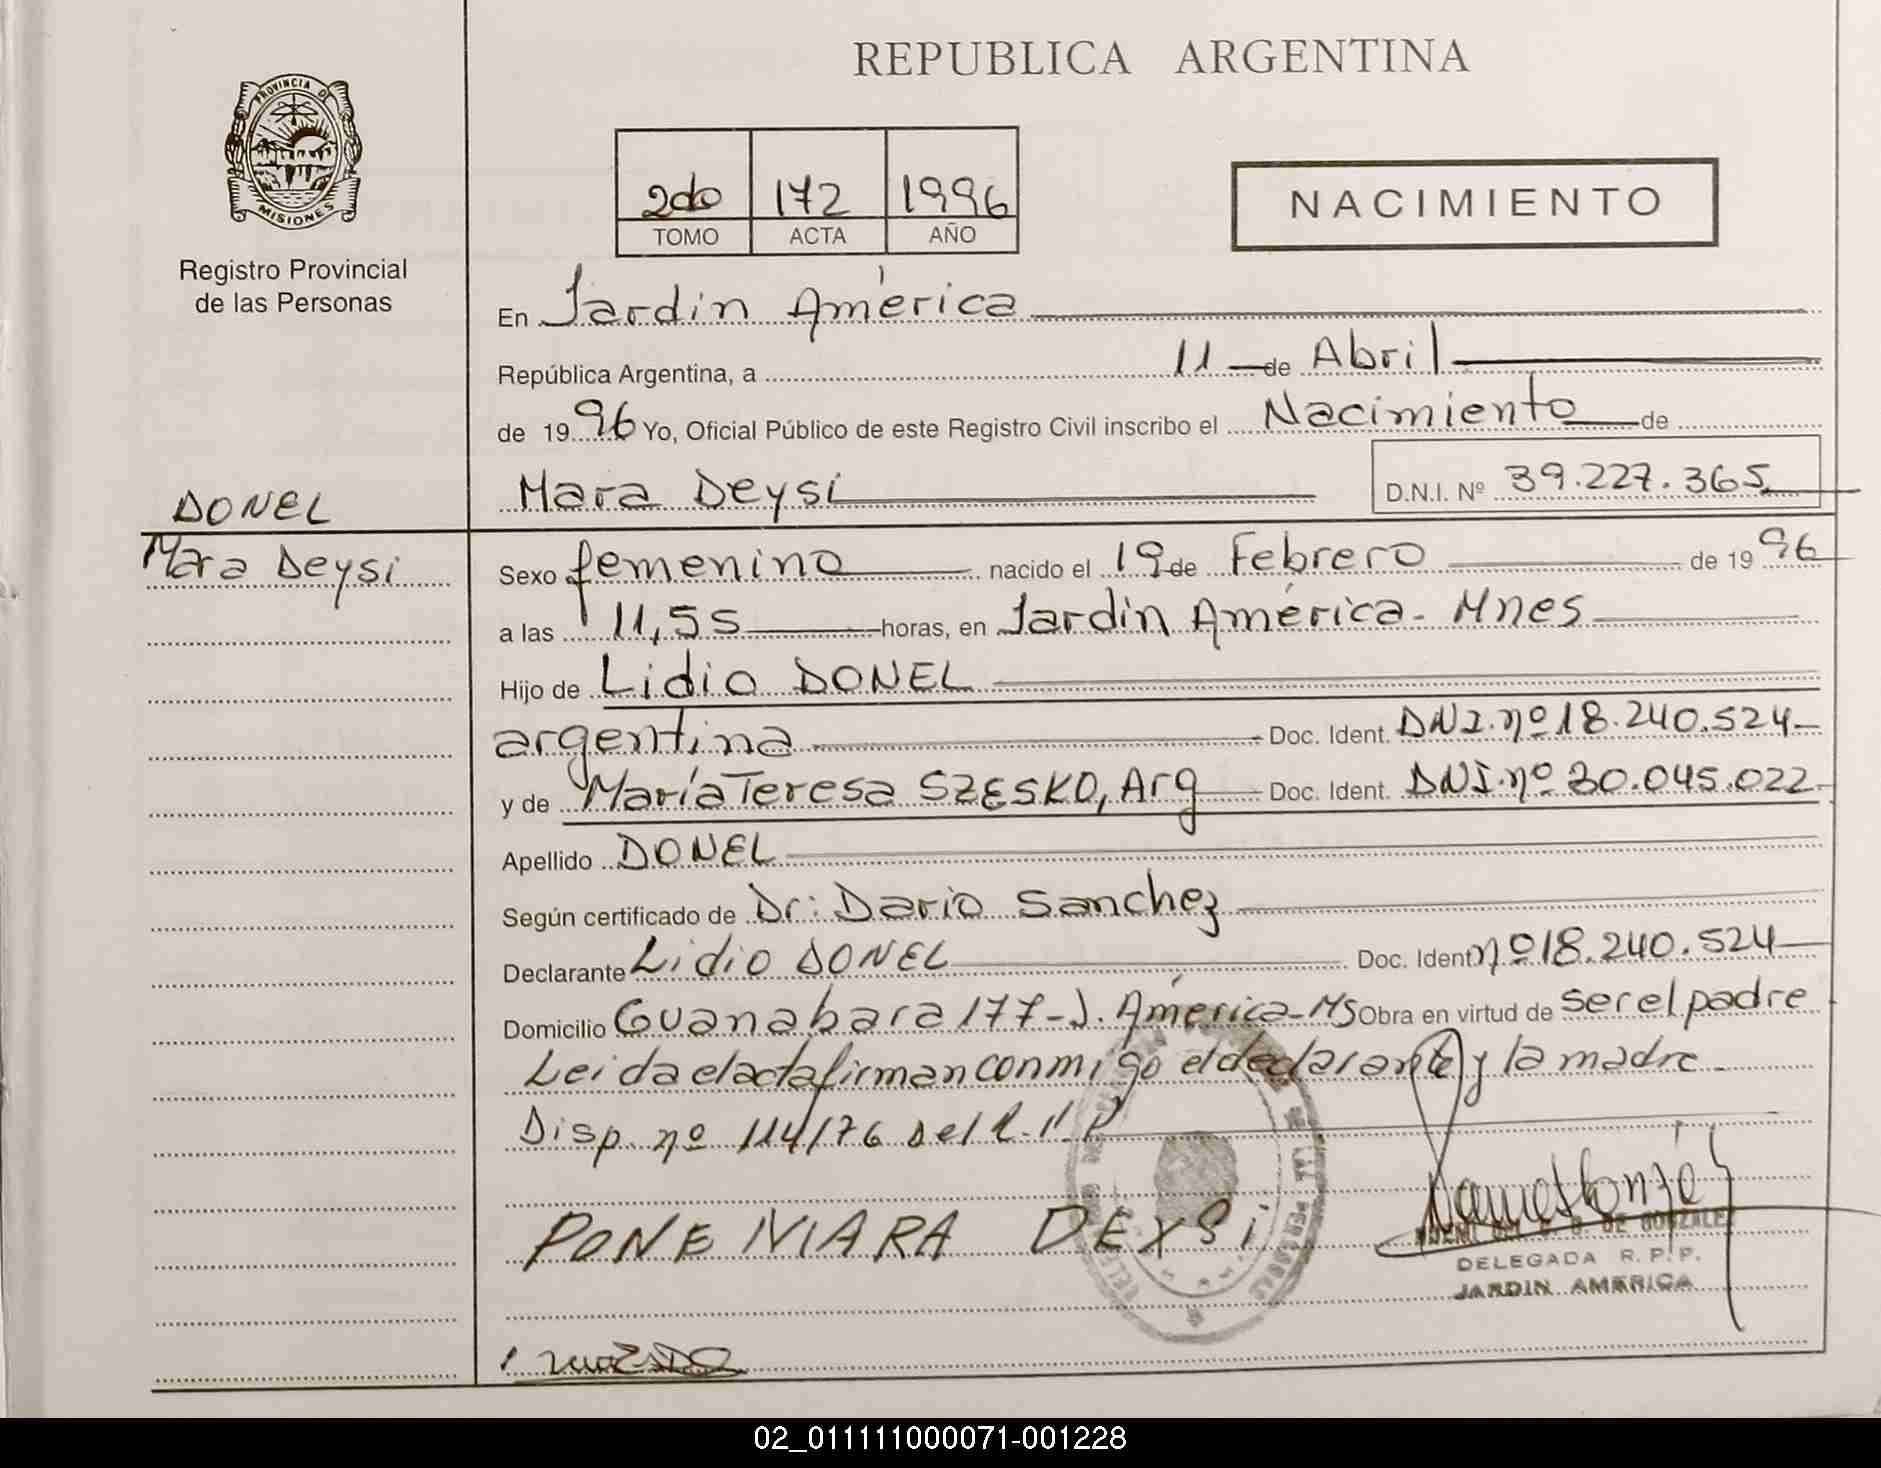 REPUBLICA ARGENTINA
PROVINCIA DE
MISIONES
Registro Provincial
de las Personas
2do 172 1996
TOMO ACTA AÑO
NACIMIENTO
En Jardin América
República Argentina, a 11 de Abril
de 1996 Yo, Oficial Público de este Registro Civil inscribo el Nacimiento de
Mara Deysi D.N.I. Nº 39.227.365
DONEL
Mara Deysi
Sexo femenino nacido el 19 de Febrero de 1996
a las 11,55 horas, en Jardin América - Mnes
Hijo de Lidio DONEL
argentina Doc. Ident. DNI. nº 18.240.524
y de María Teresa SZESKO, Arg Doc. Ident. DNI. nº 30.045.022
Apellido DONEL
Según certificado de Dr: Dario Sanchez
Declarante Lidio DONEL Doc. Ident nº 18.240.524
Domicilio Guanabara 177-J. América-MS Obra en virtud de ser el padre
Leida el acta firman conmigo el declarante y la madre
Disp. nº 114/76 del
PONE MARA DEXSi
DE GONZALEZ
DELEGADA R.P.P.
JARDIN AMERICA
02_011111000071-001228